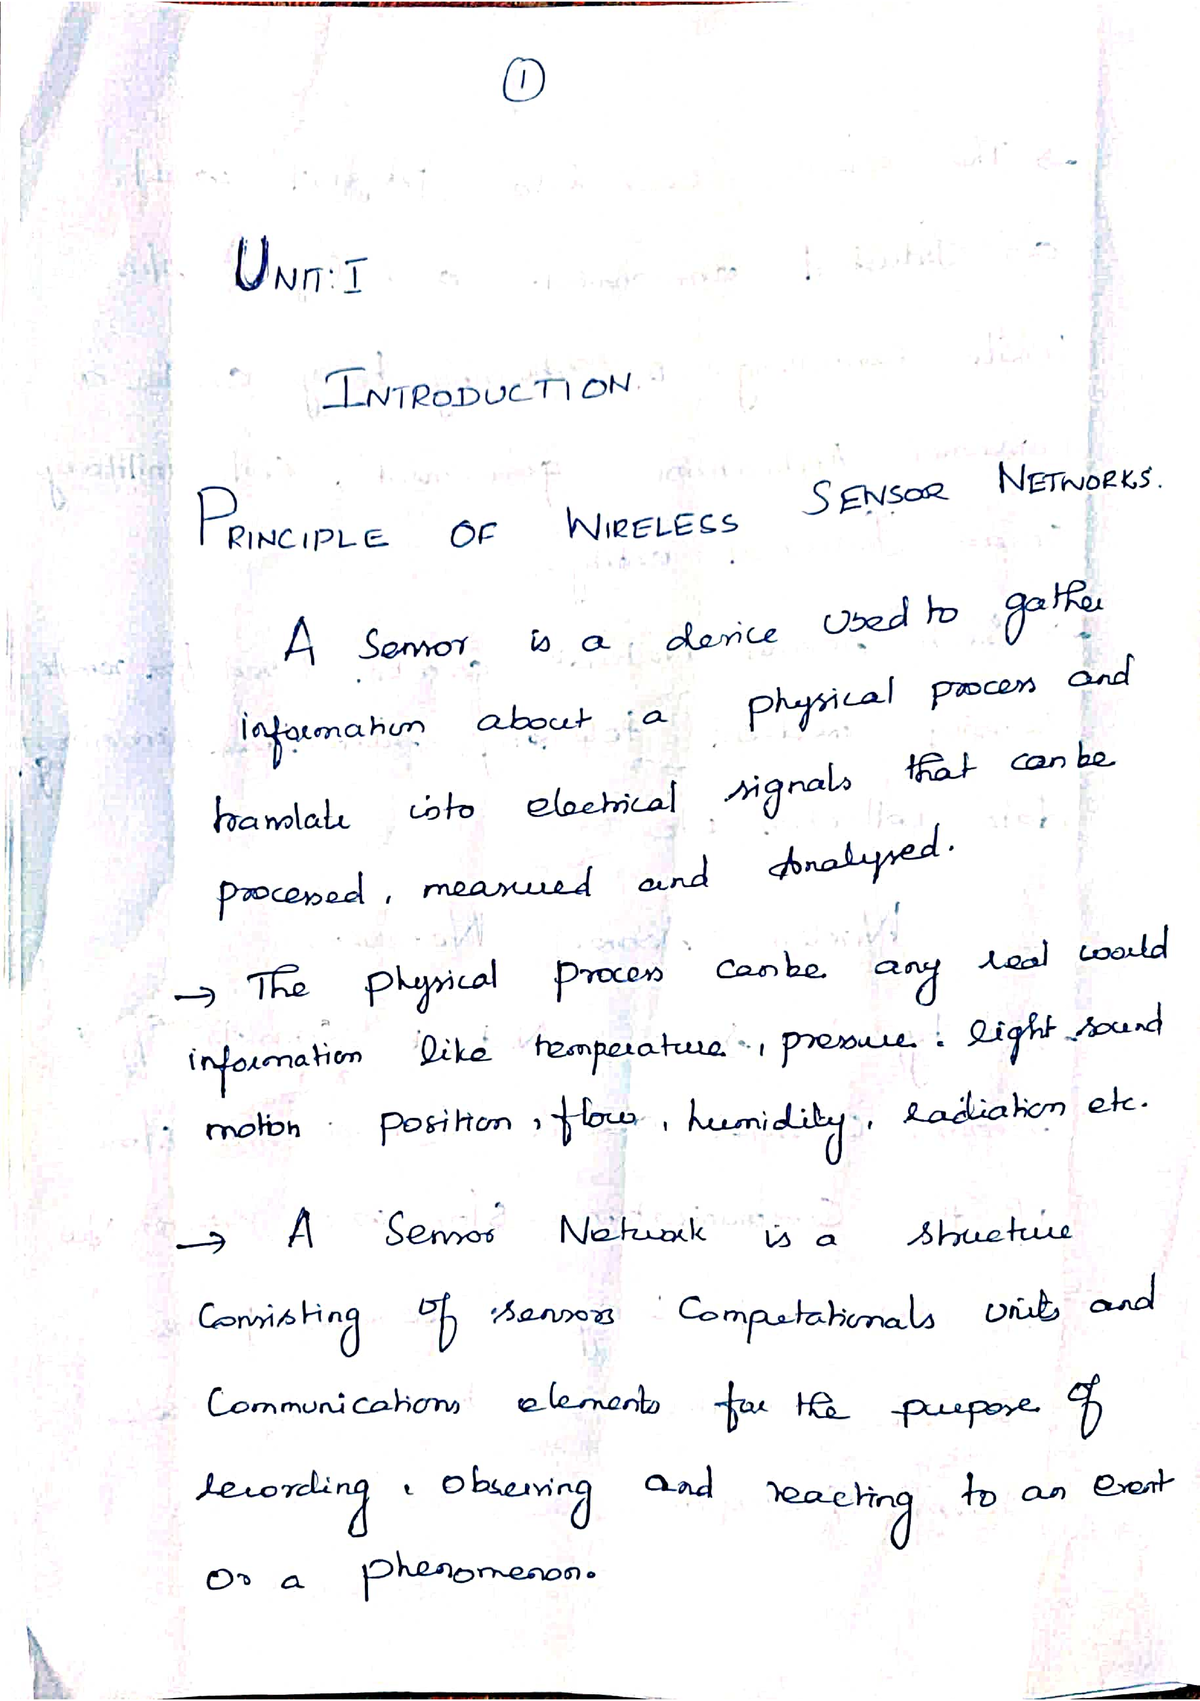 1
UNIT: I
INTRODUCTION.
PRINCIPLE OF WIRELESS SENSOR NETWORKS.
A Sensor is a device used to gather
information about a physical process and
translate into electrical signals that can be
processed, measured and Analysed.
→ The physical process can be any real world
information like temperature, pressure, light sound
motion position, flow, humidity, radiation etc.
→ A Sensor Network is a structure
Consisting of sensors Computationals units and
Communications elements for the purpose of
recording, observing and reacting to an event
or a phenomenon.